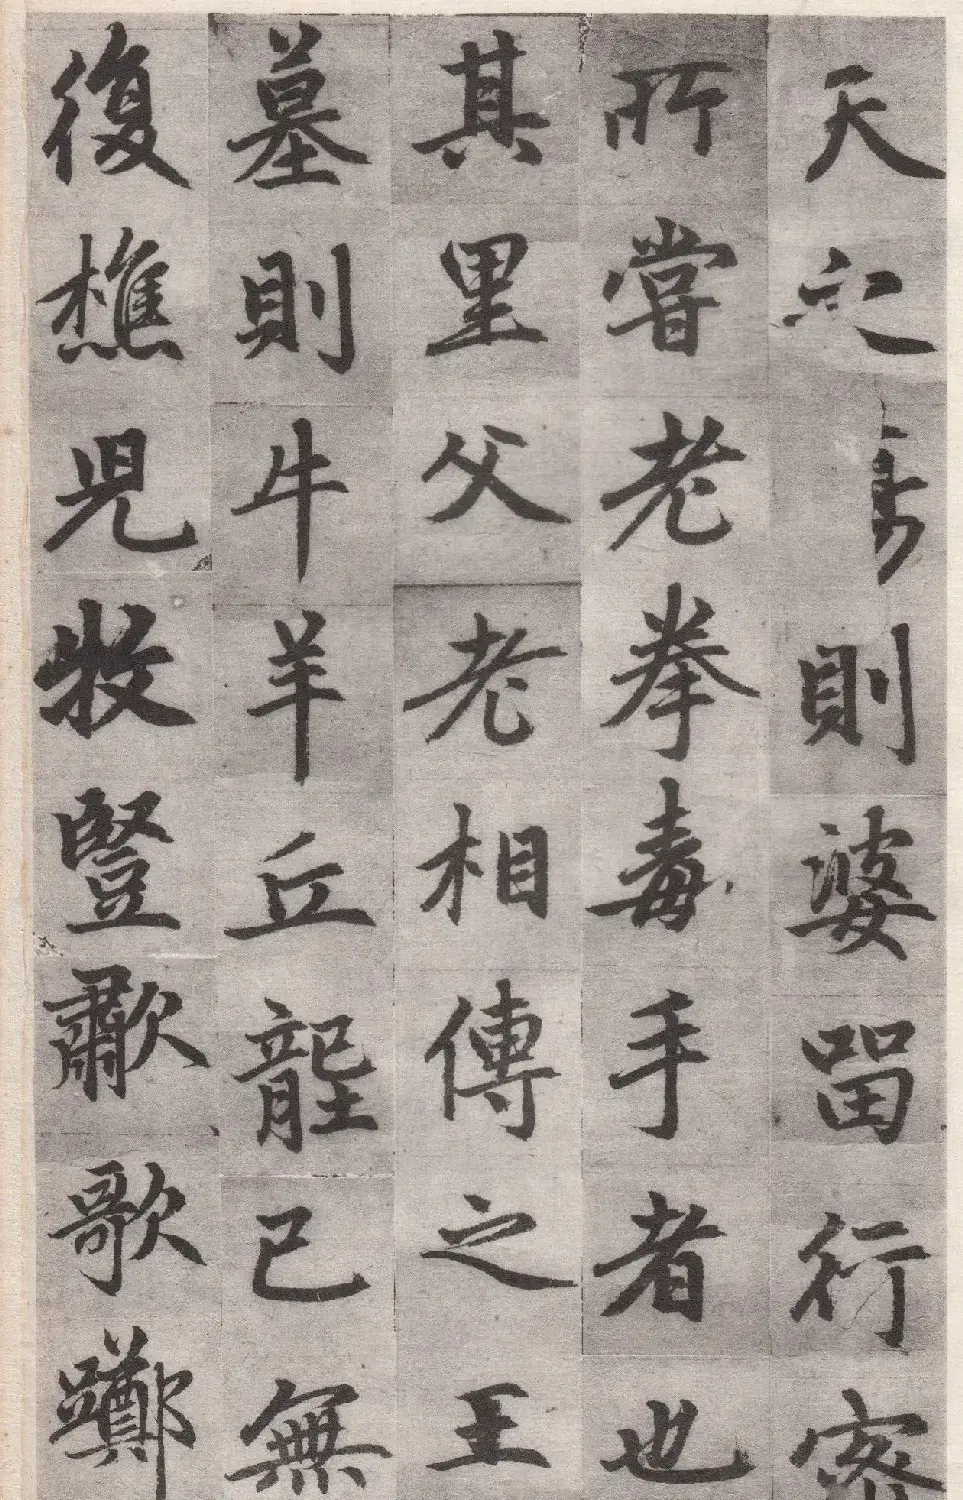 天之則婆留行密
所嘗老拳毒手者也
其里父老相傳之王
墓則牛羊丘壟已無
復樵兒牧豎歗歌躑